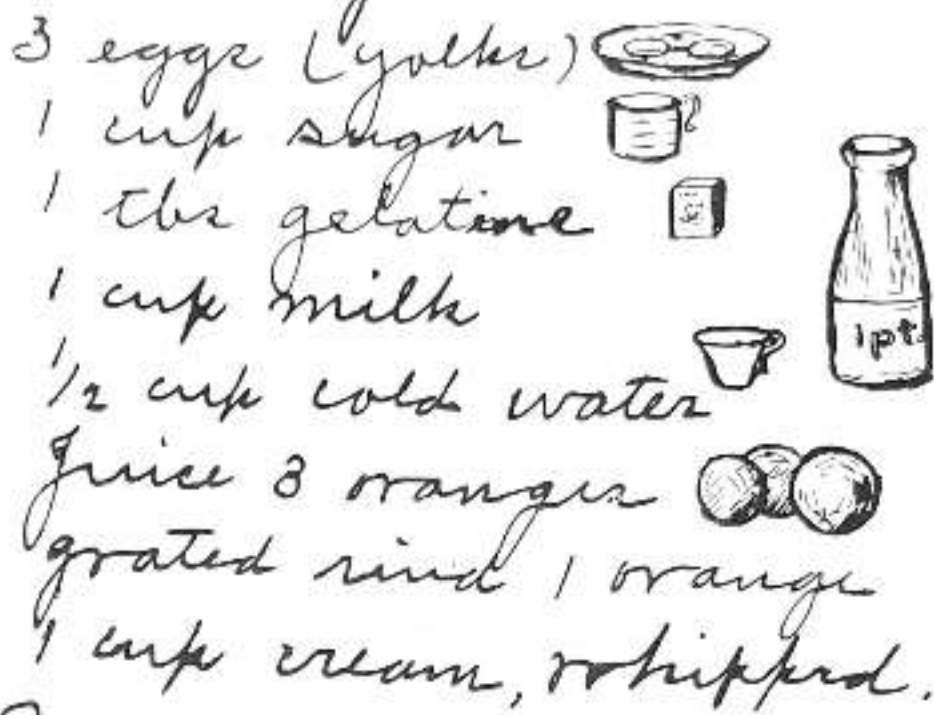 3 eggs (yolks)
1 cup sugar
1 tbs gelatine
1 cup milk
1pt.
1/2 cup cold water
Juice 3 oranges
grated rind 1 orange
1 cup cream, whipped.